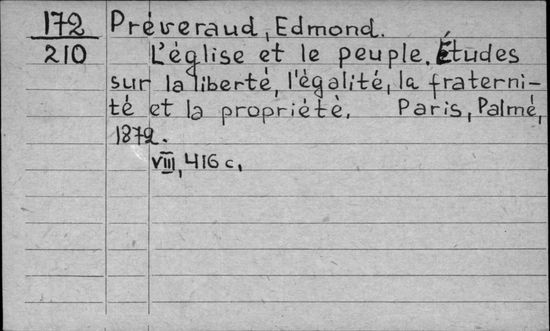 172 Préveraud, Edmond.
210 L'église et le peuple. Études
sur la liberté, l'égalité, la fraterni-
té et la propriété. Paris, Palmé,
1872.
VIII, 416 c.